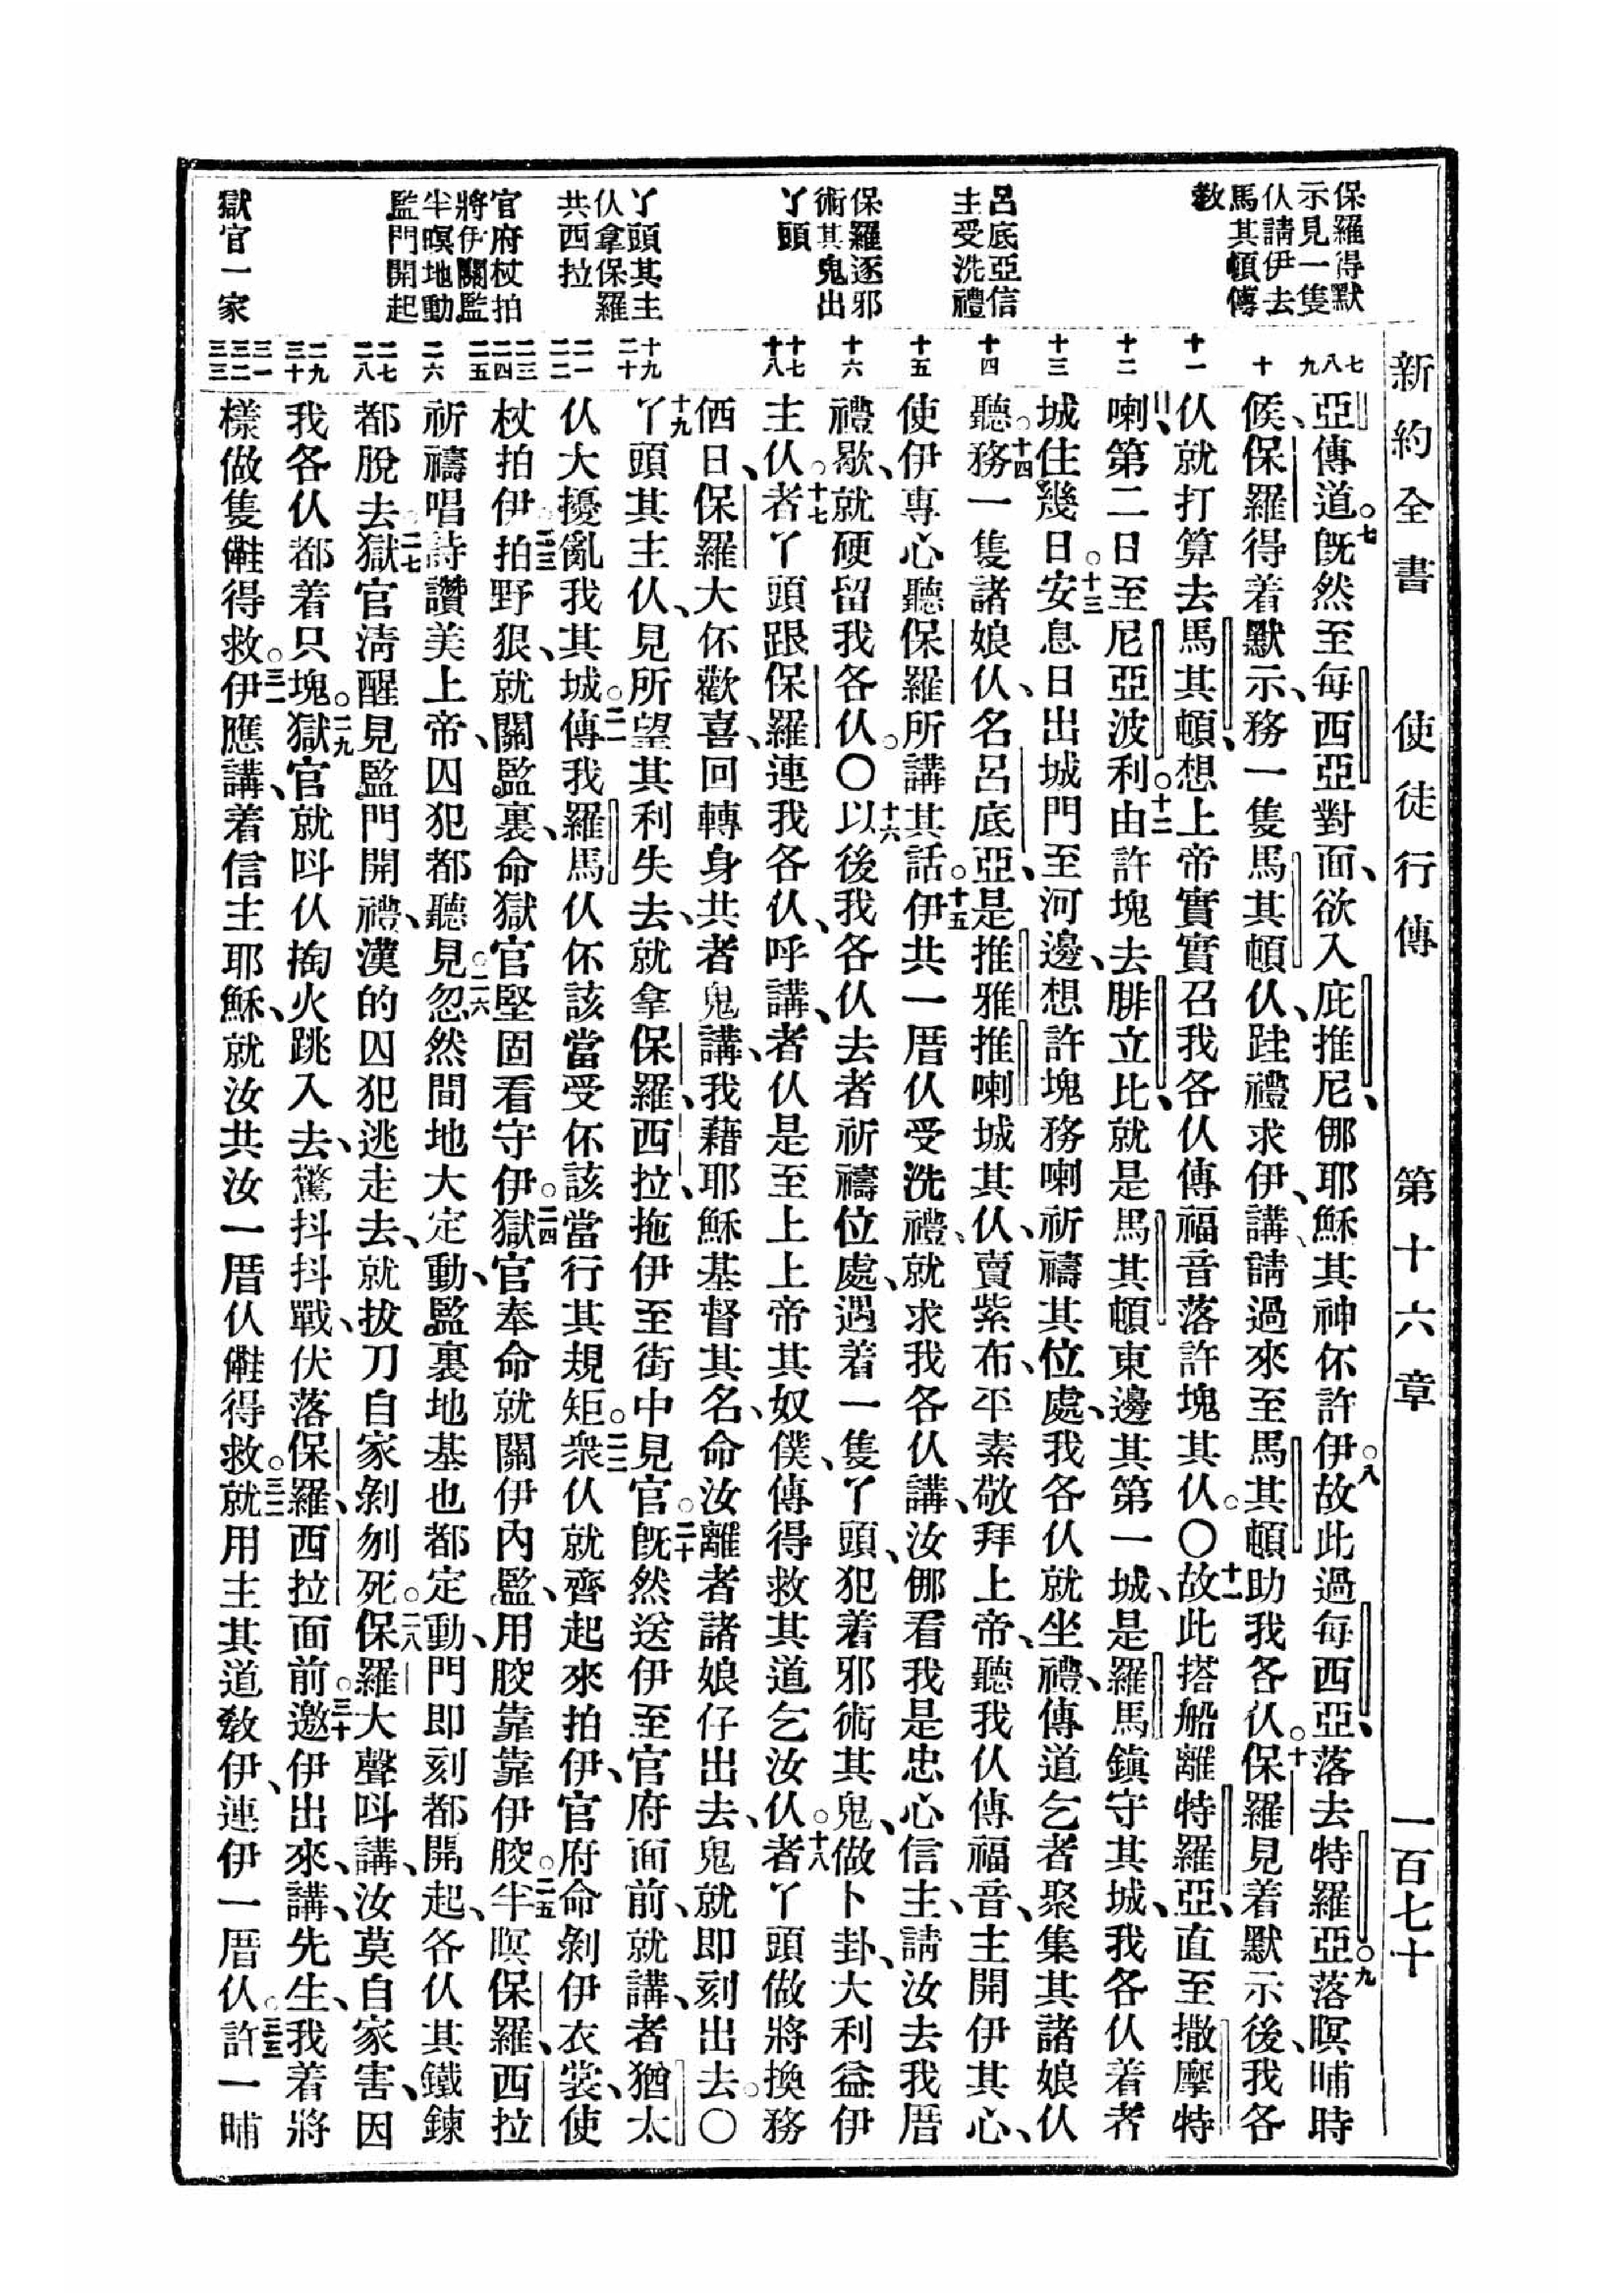 新約全書 使徒行傳 第十六章 一百七十
保羅得默
示見一隻
仈請伊去
馬其頓傳
敎
呂底亞信
主受洗禮
保羅逐邪
術其鬼出
丫頭
丫頭其主
仈拿保羅
共西拉
官府杖拍
將伊關監
半暝地動
監門開起
獄官一家
七
八
九
十
十一
十二
十三
十四
十五
十六
十七
十八
十九
二十
二一
二二
二三
二四
二五
二六
二七
二八
二九
三十
三一
三二
三三
亞傳道。七旣然至每西亞對面、欲入庇推尼、㑚耶穌其神伓許伊。八故此過每西亞、落去特羅亞。九落暝晡時
候、保羅得着默示、務一隻馬其頓仈、跬禮求伊、講、請過來至馬其頓助我各仈。十保羅見着默示後、我各
仈就打算去馬其頓、想上帝實實召我各仈傳福音落許塊其仈。〇十一故此搭船離特羅亞、直至撒摩特
喇、第二日至尼亞波利。十二由許塊去腓立比、就是馬其頓東邊其第一城、是羅馬鎮守其城、我各仈着者
城住幾日。十三安息日出城門至河邊、想許塊務喇祈禱其位處、我各仈就坐禮、傳道乞者聚集其諸娘仈
聽。十四務一隻諸娘仈、名呂底亞、是推雅推喇城其仈、賣紫布、平素敬拜上帝、聽我仈傳福音、主開伊其心、
使伊專心聽保羅所講其話。十五伊共一厝仈受洗禮、就求我各仈講、汝㑚看我是忠心信主、請汝去我厝
禮歇、就硬留我各仈。〇十六以後我各仈去者祈禱位處、遇着一隻丫頭、犯着邪術其鬼、做卜卦、大利益伊
主仈。十七者丫頭跟保羅連我各仈、呼講、者仈是至上上帝其奴僕、傳得救其道乞汝仈。十八者丫頭做將換務
価日、保羅大伓歡喜、回轉身共者鬼講、我藉耶穌基督其名、命汝離者諸娘仔出去、鬼就即刻出去。〇
十九丫頭其主仈、見所望其利失去、就拿保羅、西拉、拖伊至街中見官。二十旣然送伊至官府面前、就講、者猶太
仈大擾亂我其城。二一傳我羅馬仈伓該當受伓該當行其規矩。二二衆仈就齊起來拍伊、官府命剝伊衣裳、使
杖拍伊。二三拍野狠、就關監裏、命獄官堅固看守伊。二四獄官奉命就關伊內監、用骹靠靠伊骹。二五半暝保羅、西拉
祈禱唱詩讚美上帝、囚犯都聽見。二六忽然間地大定動、監裏地基也都定動、門即刻都開起、各仈其鐵鍊
都脫去。二七獄官淸醒見監門開禮、漢的囚犯逃走去、就拔刀自家剝刎死。二八保羅大聲呌講、汝莫自家害、因
我各仈都着只塊。二九獄官就呌仈掏火跳入去、驚抖抖戰、伏落保羅、西拉面前。三十邀伊出來、講、先生、我着將
樣做隻𠲥得救。三一伊應講、着信主耶穌、就汝共汝一厝仈𠲥得救。三二就用主其道敎伊、連伊一厝仈。三三許一晡